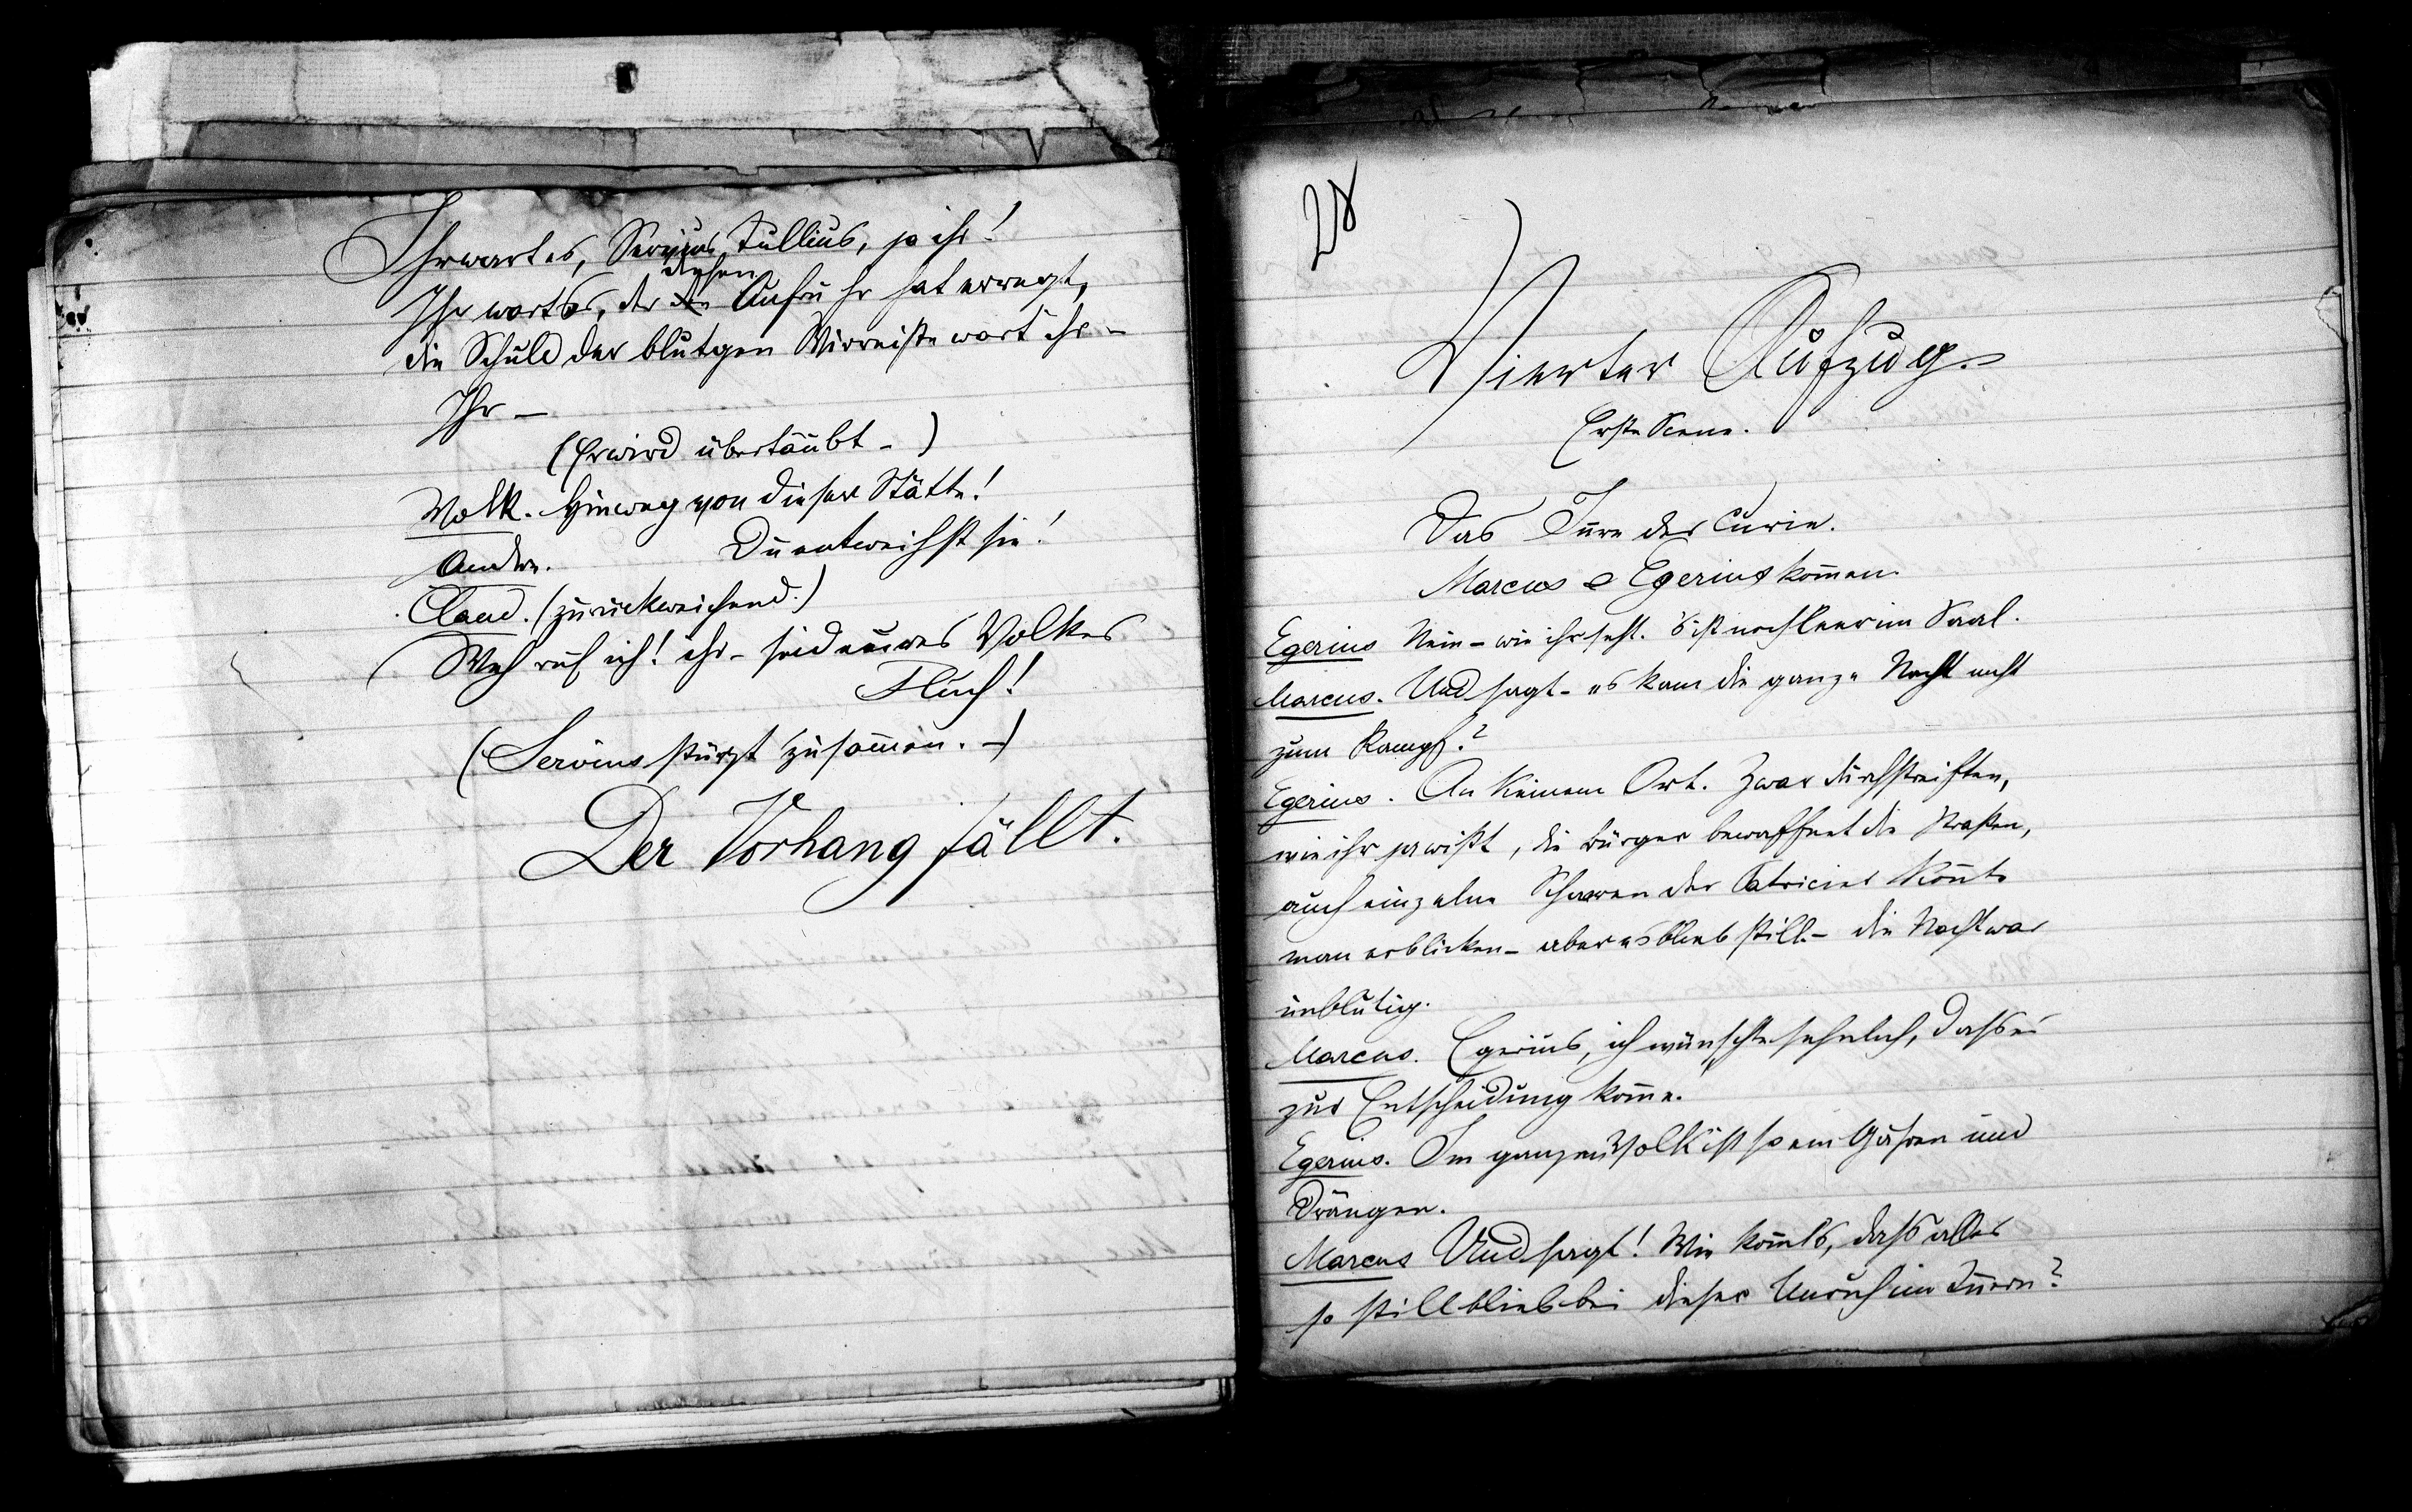 Ihr wart es, Servius Tullius, ja ihr!
diesen
Ihr wart es, der den Aufruhr hat erregt,
die Schuld der blutgen Wirrniße wart ihr –
Ihr –
(Er wird übertäubt –)
Volk. Hinweg von dieser Stätte!
Andre. Du entweihst sie!
Claud. (zurückweichend.)
Weh ruf ich! ihr – seid eures Volkes
Fluch!
(Servius stürzt zusam̅en. –)
Der Vorhang fällt.
28
Vierter Aufzug.
Erste Scene.
Das In̅re der Curie.
Marcus & Egerius kom̅en.
Egerius Nein – wie ihr seht. 's ist noch leer im Saal.
Marcus. Und sagt – es kam die ganze Nacht nicht
zum Kampf?
Egerius. An keinem Ort. Zwar durchstreiften,
wie ihr ja wißt, die Bürger bewaffnet die Straßen,
auch einzelne Scharen der Patricier kon̅te
man erblicken – aber es blieb still – die Nacht war
unblutig.
Marcus. Egerius, ich wünschte sehnlich, dass es
zur Entscheidung kom̅e.
Egerius. Im ganzen Volk ist so ein Gähren und
Drängen.
Marcus Und sagt! Wie kom̅ts, dass alles
so still blieb bei dieser Unruh im In̅ern?